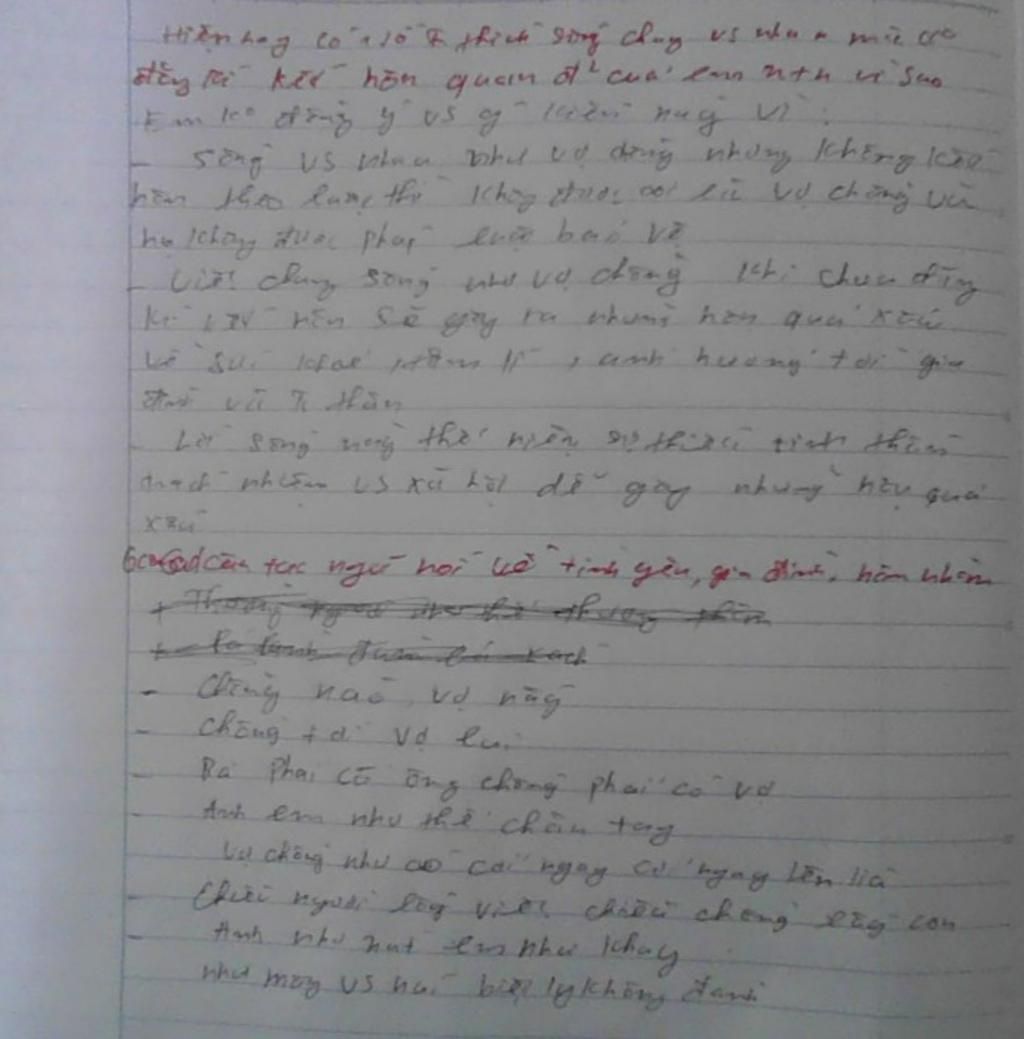 Hiện nay có 1 số thích sống chung vs nhau mà ko
đăng kí kết hôn quan đ² của em ntn vì sao
Em ko đồng ý vs ý kiến này vì :
- Sống vs nhau như vợ chồng nhưng không kết
hôn theo luật thì không được coi là vợ chồng và
họ không được pháp luật bảo vệ
- Việc chung sống như vợ chồng khi chưa đăng
kí kết hôn sẽ gây ra những hậu quả xấu
về sức khoẻ, tâm lí, ảnh hưởng tới gia
đình và thân
- Lối sống này thể hiện sự thiếu tinh thần
trách nhiệm vs xã hội dễ gây những hậu quả
xấu
câu tục ngữ nói về tình yêu, gia đình, hôn nhân
+ Thương người như thể thương thân
+ Lá lành đùm lá rách
- Chồng nào, vợ nấy
- Chồng tới vợ lui
- Bà phải có ông chồng phải có vợ
- Anh em như thể chân tay
Vợ chồng như áo cởi ngay cứ ngay lên lìa
- người lấy việc chồng lấy con
- Anh như nút em như khuy
như mây vs núi biệt ly không đành